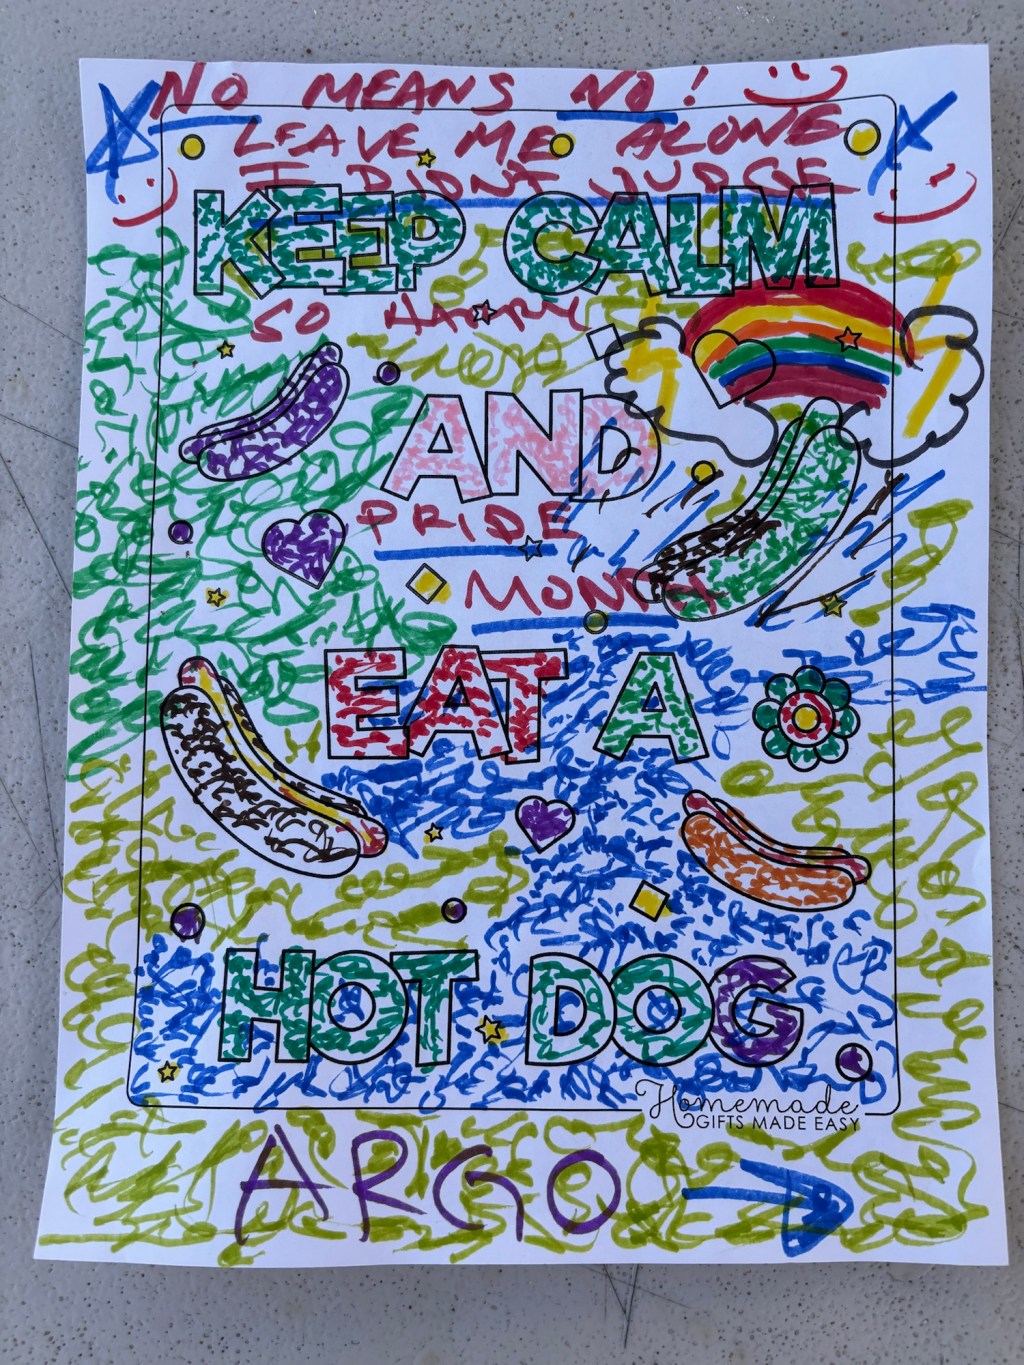 NO MEANS NO!
LEAVE ME ALONE
I DIDNT JUDGE
KEEP CALM
SO HAPPY
AND
PRIDE
MONTH
EAT A
HOT DOG
Homemade
GIFTS MADE EASY
ARGO